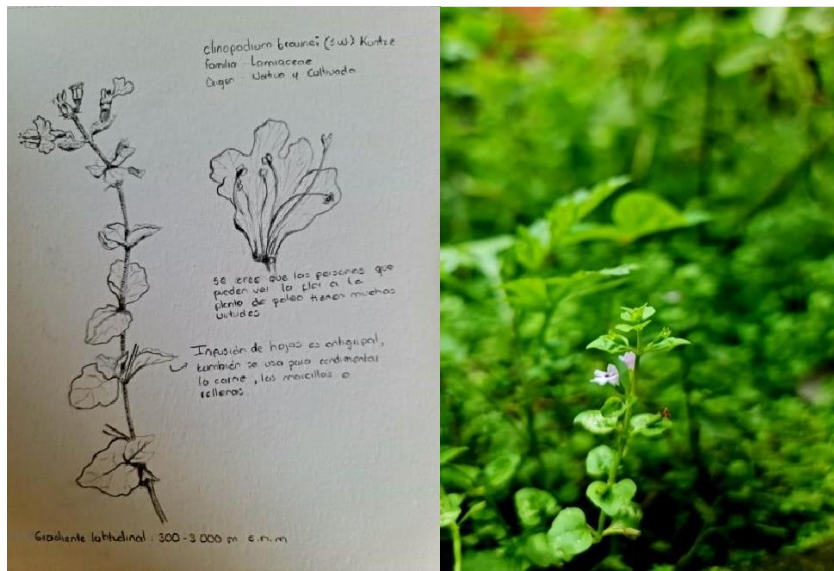 clinopodium brownei (sw.) Kuntze
familia: Lamiaceae
Origen: Nativa y Cultivada
se cree que las personas que
pueden ver la flor a la
planta de poleo tienen muchas
virtudes
Infusión de hojas es antigripal,
también se usa para condimentar
la carne, las morcillas o
rellenas.
Gradiente latitudinal: 300-3000 m s.n.m